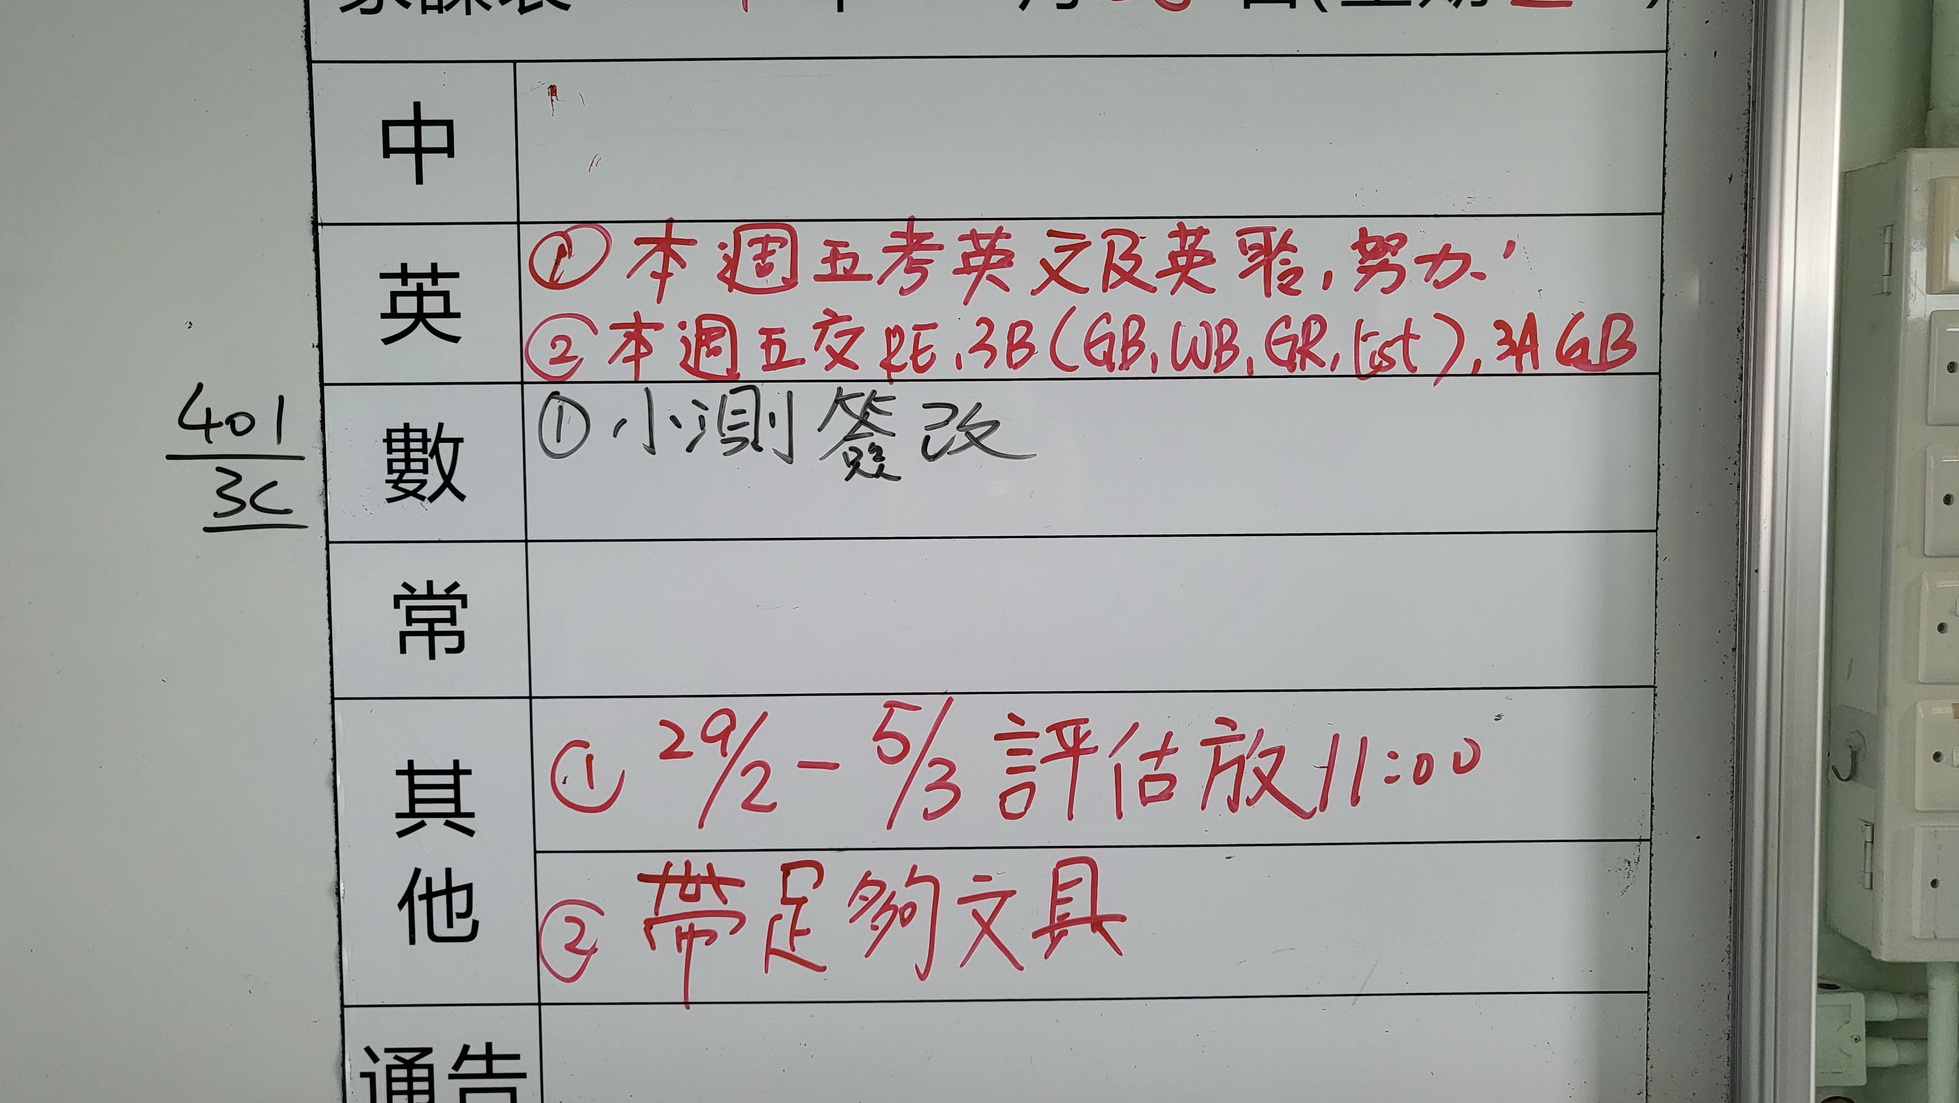 家課表 年 月 日(星期 )
中
英
① 本週五考英文及英聆,努力.'
② 本週五交RE,3B(GB,WB,GR,list),3A GB
401
3C
數
① 小測簽改
常
其他
① 29/2 - 5/3 評估放11:00
② 帶足夠文具
通告